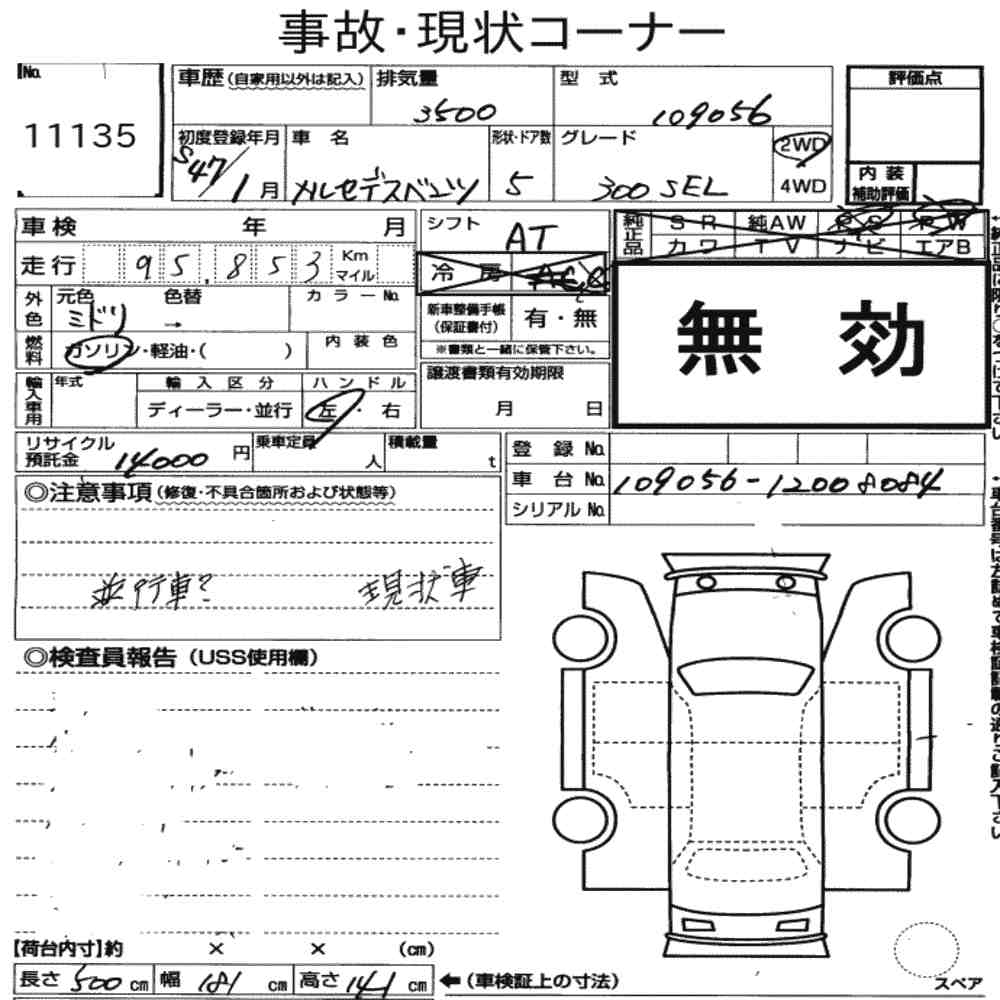 事故・現状コーナー
No. 11135
車歴 (自家用以外は記入)
排気量 3500
型式 109056
評価点
初度登録年月 S47/1月
車名 メルセデスベンツ
形状・ドア数 5
グレード 300SEL
2WD
4WD
内装補助評価
車検 年 月
走行 95,853 Km マイル
外色 元色 ミドリ 色替 → カラーNo.
燃料 ガソリン・軽油・( )
内装色
輸入車用 年式 輸入区分 ディーラー・並行 ハンドル 左・右
リサイクル預託金 14000円
乗車定員 人
積載量 t
シフト AT
冷房
新車整備手帳(保証書付) 有・無
※書類と一緒に保管下さい。
譲渡書類有効期限
月 日
純正品 SR 純AW PS PW
カワ TV ナビ エアB
無効
登録No.
車台No. 109056-12008084
シリアルNo.
◎注意事項 (修復・不具合箇所および状態等)
並行車? 現状車
◎検査員報告 (USS使用欄)
【荷台内寸】約 × × (cm)
長さ 500 cm 幅 181 cm 高さ 141 cm ←(車検証上の寸法)
スペア